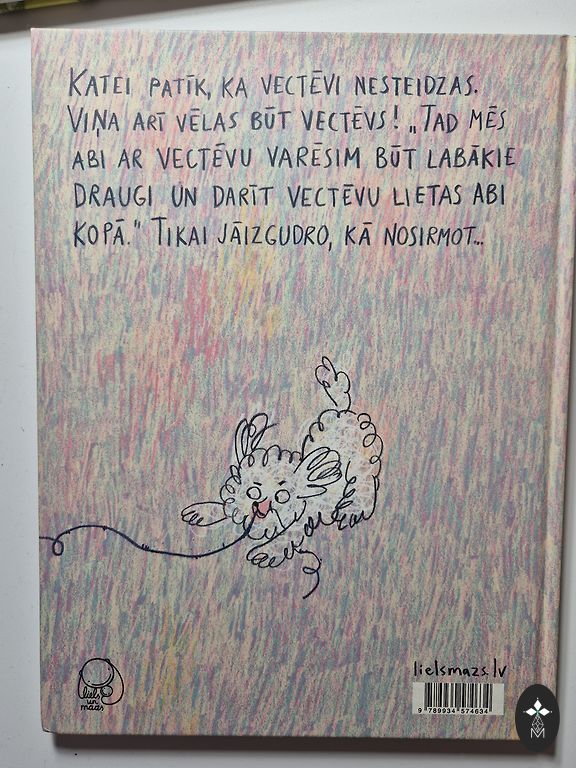 KATEI PATĪK, KA VECTĒVI NESTEIDZAS.
VIŅA ARĪ VĒLAS BŪT VECTĒVS! „TAD MĒS
ABI AR VECTĒVU VARĒSIM BŪT LABĀKIE
DRAUGI UN DARĪT VECTĒVU LIETAS ABI
KOPĀ." TIKAI JĀIZGUDRO, KĀ NOSIRMOT...
lielsmazs.lv
liels
un
mazs
9 789934 574634
M